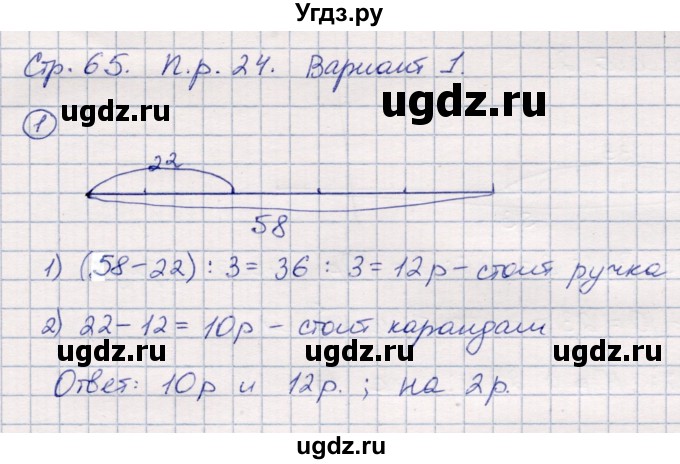 Угдз.ру
Стр. 65. П.р. 24. Вариант 1.
ugdz.ru ugdz.ru
1
22
58
ugdz.ru ugdz.ru
1) (58-22) : 3 = 36 : 3 = 12р - стоит ручка
2) 22-12 = 10р - стоит карандаш
ugdz.ru ugdz.ru
Ответ: 10р и 12р. ; на 2р.
ugdz.ru